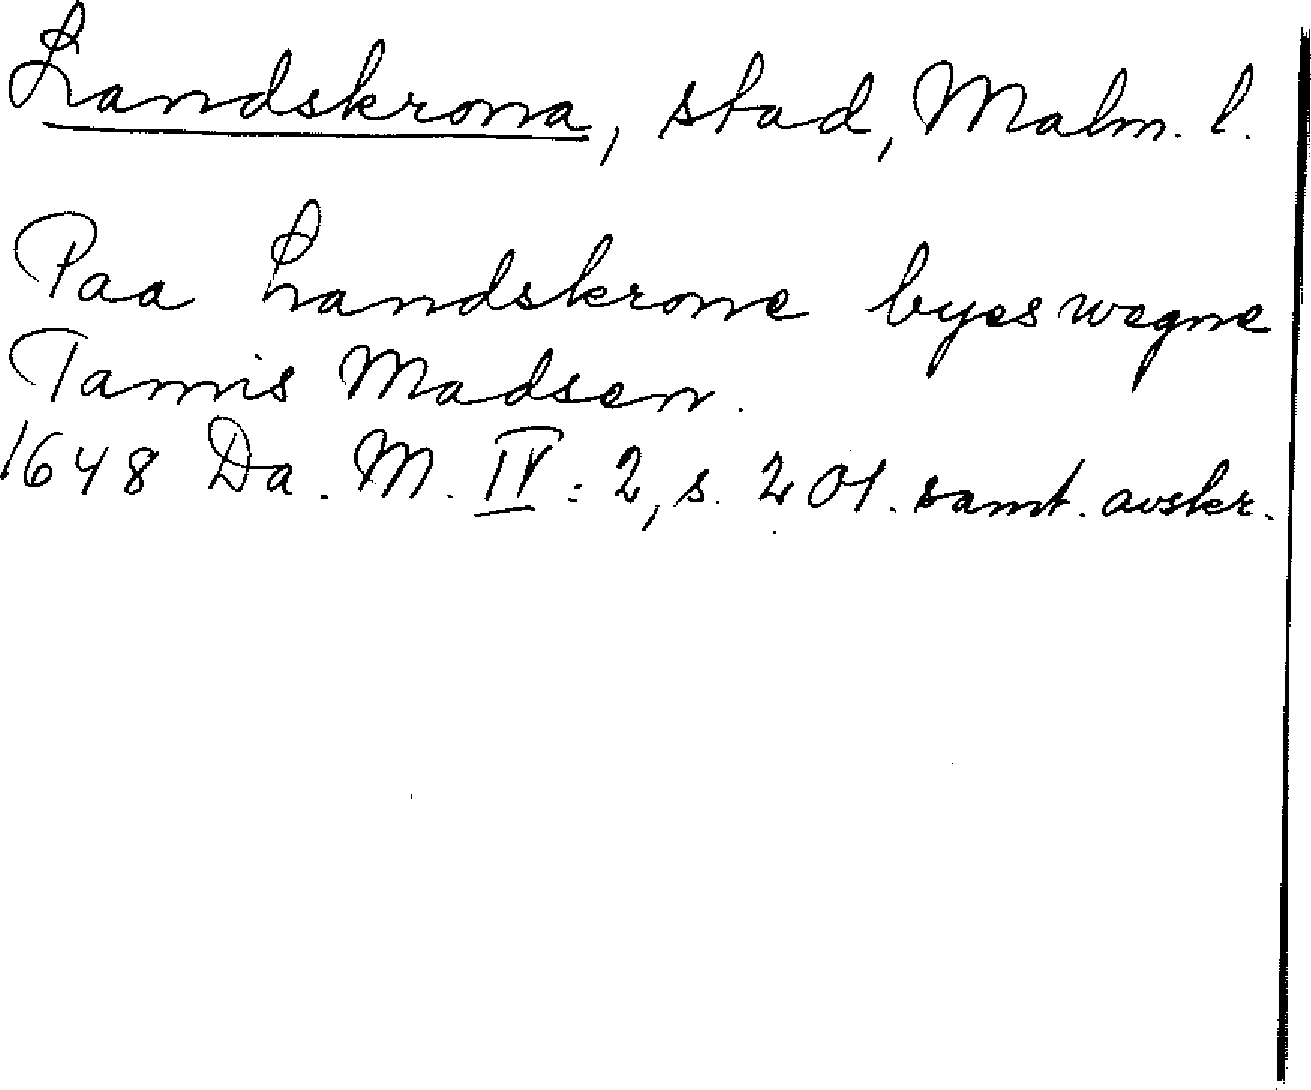 Landskrona, stad, Malm. l.
Paa Landskrone byes wegne
Tamis Madsen.
1648 Da. M. IV: 2, s. 201. samt. avskr.